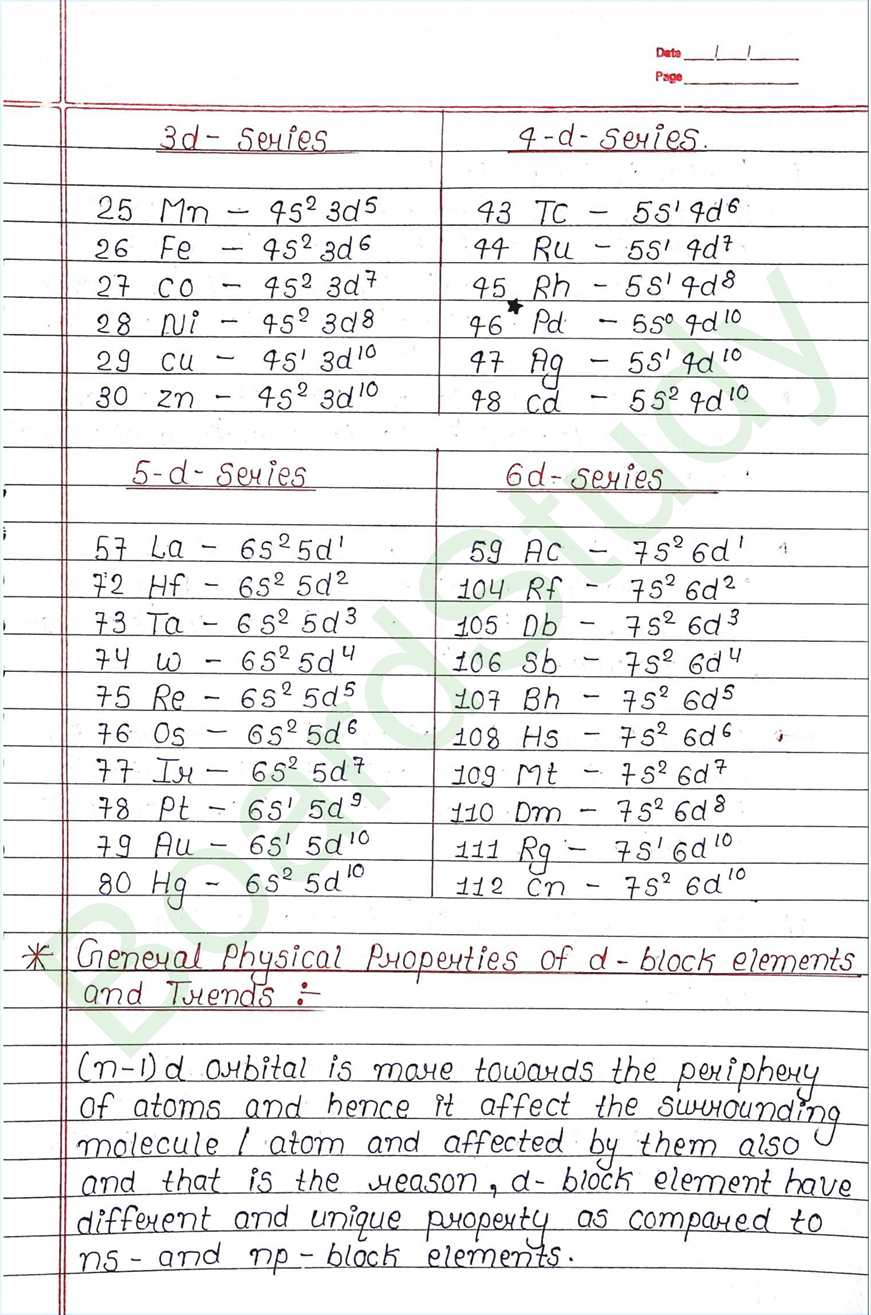 Date ___/___/___
Page ___
3d - Series
4-d-Series.
25 Mn - 4S² 3d⁵
26 Fe - 4S² 3d⁶
27 Co - 4S² 3d⁷
28 Ni - 4S² 3d⁸
29 Cu - 4S¹ 3d¹⁰
30 Zn - 4S² 3d¹⁰
43 Tc - 5S¹ 4d⁶
44 Ru - 5S¹ 4d⁷
45 Rh - 5S¹ 4d⁸
46 ★ Pd - 5S⁰ 4d¹⁰
47 Ag - 5S¹ 4d¹⁰
48 Cd - 5S² 4d¹⁰
5-d-Series
6d-Series
57 La - 6S² 5d¹
72 Hf - 6S² 5d²
73 Ta - 6S² 5d³
74 W - 6S² 5d⁴
75 Re - 6S² 5d⁵
76 Os - 6S² 5d⁶
77 Ir - 6S² 5d⁷
78 Pt - 6S¹ 5d⁹
79 Au - 6S¹ 5d¹⁰
80 Hg - 6S² 5d¹⁰
59 Ac - 7S² 6d¹
104 Rf - 7S² 6d²
105 Db - 7S² 6d³
106 Sb - 7S² 6d⁴
107 Bh - 7S² 6d⁵
108 Hs - 7S² 6d⁶
109 Mt - 7S² 6d⁷
110 Dm - 7S² 6d⁸
111 Rg - 7S¹ 6d¹⁰
112 Cn - 7S² 6d¹⁰
* General Physical Properties of d-block elements
and Trends :-
(n-1)d orbital is more towards the periphery
of atoms and hence it affect the surrounding
molecule / atom and affected by them also
and that is the reason, d-block element have
different and unique property as compared to
ns- and np-block elements.
BoardStudy